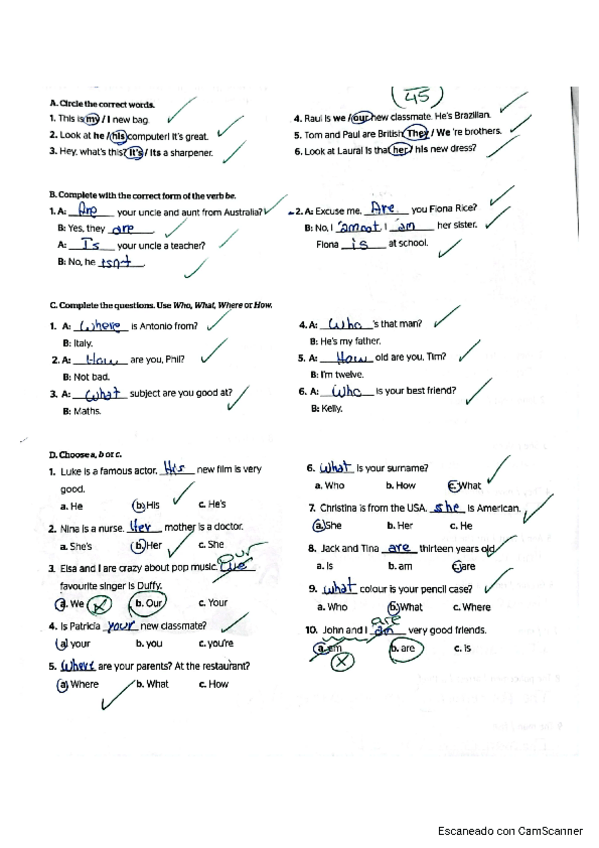 (45)
A. Circle the correct words.
1. This is my / I new bag.
2. Look at he / his computer! It's great.
3. Hey, what's this? It's / Its a sharpener.
4. Raul is we / our new classmate. He's Brazilian.
5. Tom and Paul are British. They / We 're brothers.
6. Look at Laura! Is that her / his new dress?
B. Complete with the correct form of the verb be.
1. A: Are your uncle and aunt from Australia?
B: Yes, they are.
A: Is your uncle a teacher?
B: No, he isnt.
2. A: Excuse me. Are you Fiona Rice?
B: No, I 'amnot I am her sister.
Fiona is at school.
C. Complete the questions. Use Who, What, Where or How.
1. A: Where is Antonio from?
B: Italy.
2. A: How are you, Phil?
B: Not bad.
3. A: What subject are you good at?
B: Maths.
4. A: Who 's that man?
B: He's my father.
5. A: How old are you, Tim?
B: I'm twelve.
6. A: Who is your best friend?
B: Kelly.
D. Choose a, b or c.
1. Luke is a famous actor. His new film is very
good.
a. He b. His c. He's
2. Nina is a nurse. Her mother is a doctor.
a. She's b. Her c. She
Our
3. Elsa and I are crazy about pop music.
favourite singer is Duffy.
a. We b. Our c. Your
4. Is Patricia your new classmate?
a. your b. you c. you're
5. Where are your parents? At the restaurant?
a. Where b. What c. How
6. What is your surname?
a. Who b. How c. What
7. Christina is from the USA. she is American.
a. She b. Her c. He
8. Jack and Tina are thirteen years old.
a. is b. am c. are
9. What colour is your pencil case?
a. Who b. What c. Where
are
10. John and I am very good friends.
a. am b. are c. is
Escaneado con CamScanner